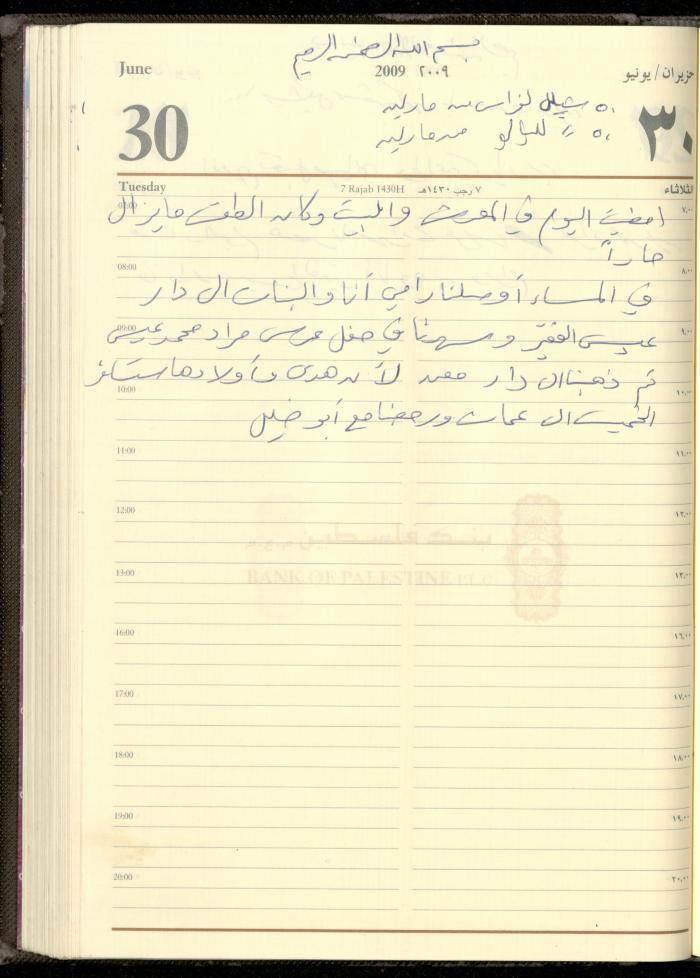 بسم الله الرحمن الرحيم
June 2009 ٢٠٠٩ حزيران / يونيو
٥٠ شيكل لفراس من مارلين
30 ٣٠
٥٠ // للؤالؤ من مارلين
Tuesday 7 Rajab 1430H ٧ رجب ١٤٣٠هـ الثلاثاء
07:00 ٧,٠٠
امضيت اليوم في المعرش والبيت وكان الطقس ما يزال
حاراً
08:00 ٨,٠٠
في المساء أوصلنا رامي أنا والبنات الى دار
09:00 ٩,٠٠
عيسى الفقير وسهرنا في حفل عرس مراد محمد عيسى
ثم ذهبنا الى دار معد لأن هدى وأولادها ستسافر
10:00 ١٠,٠٠
الخميس الى عمان ورجعنا مع أبو خليل
11:00 ١١,٠٠
12:00 ١٢,٠٠
بنك فلسطين م.ع.م
BANK OF PALESTINE PLC
13:00 ١٣,٠٠
16:00 ١٦,٠٠
17:00 ١٧,٠٠
18:00 ١٨,٠٠
19:00 ١٩,٠٠
20:00 ٢٠,٠٠